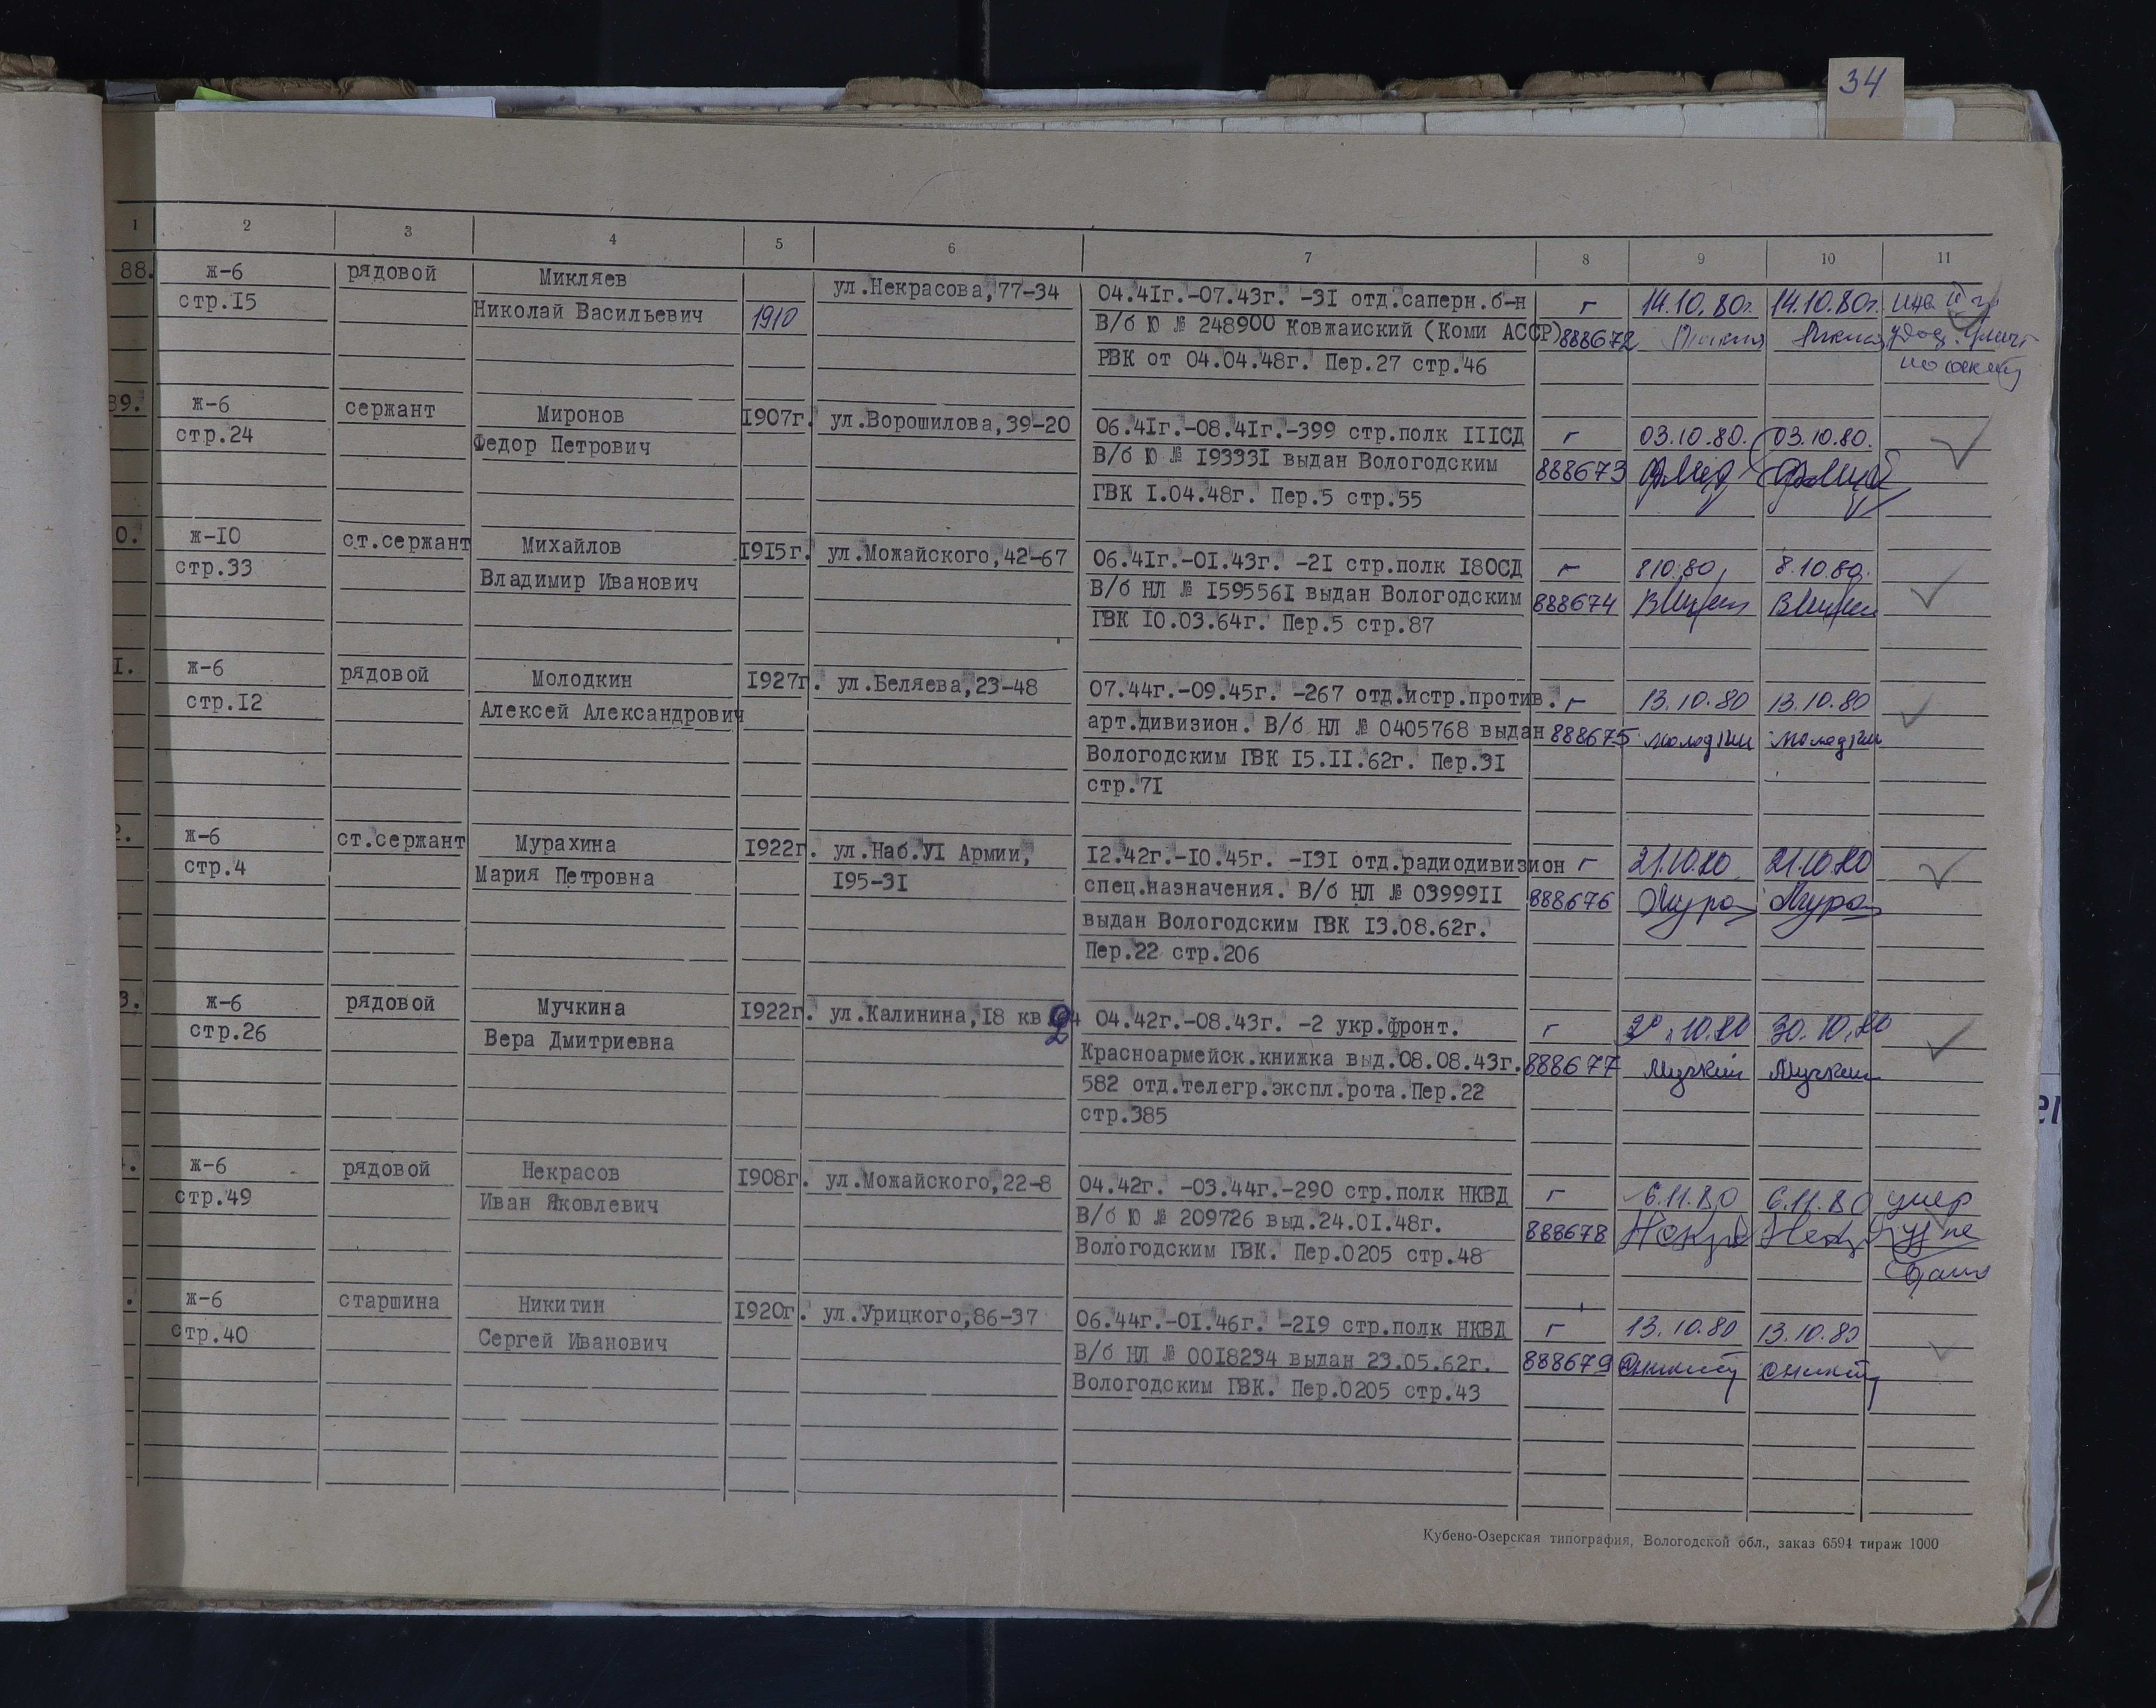 34
1 2 3 4 5 6 7 8 9 10 11
88. ж-6 рядовой Микляев ул.Некрасова,77-34 04.41г.-07.43г. -31 отд.саперн.б-н г 14.10.80г. 14.10.80г.
стр.15 Николай Васильевич 1910 В/б Ю № 248900 Ковжаиский (Коми АССР) 888672
РВК от 04.04.48г. Пер.27 стр.46
89. ж-6 сержант Миронов 1907г. ул.Ворошилова,39-20 06.41г.-08.41г.-399 стр.полк 111СД г 03.10.80. 03.10.80.
стр.24 Федор Петрович В/б Ю № 193331 выдан Вологодским 888673
ГВК 1.04.48г. Пер.5 стр.55
0. ж-10 ст.сержант Михайлов 1915г. ул.Можайского,42-67 06.41г.-01.43г. -21 стр.полк 180СД г 8.10.80. 8.10.80.
стр.33 Владимир Иванович В/б НЛ № 1595561 выдан Вологодским 888674
ГВК 10.03.64г. Пер.5 стр.87
1. ж-6 рядовой Молодкин 1927г. ул.Беляева,23-48 07.44г.-09.45г. -267 отд.истр.против. г 13.10.80 13.10.80
стр.12 Алексей Александрович арт.дивизион. В/б НЛ № 0405768 выдан 888675
Вологодским ГВК 15.11.62г. Пер.31
стр.71
2. ж-6 ст.сержант Мурахина 1922г. ул.Наб.У1 Армии, 12.42г.-10.45г. -131 отд.радиодивизион г 21.10.80 21.10.80
стр.4 Мария Петровна 195-31 спец.назначения. В/б НЛ № 0399911 888676
выдан Вологодским ГВК 13.08.62г.
Пер.22 стр.206
3. ж-6 рядовой Мучкина 1922г. ул.Калинина,18 кв. 04.42г.-08.43г. -2 укр.фронт. г 30.10.80
стр.26 Вера Дмитриевна Красноармейск.книжка выд.08.08.43г. 888677
582 отд.телегр.экспл.рота.Пер.22
стр.385
ж-6 рядовой Некрасов 1908г. ул.Можайского,22-8 04.42г. -03.44г.-290 стр.полк НКВД г 6.11.80 6.11.80 умер
стр.49 Иван Яковлевич В/б Ю № 209726 выд.24.01.48г. 888678
Вологодским ГВК. Пер.0205 стр.48
ж-6 старшина Никитин 1920г. ул.Урицкого,86-37 06.44г.-01.46г. -219 стр.полк НКВД г 13.10.80 13.10.80
стр.40 Сергей Иванович В/б НЛ № 0018234 выдан 23.05.62г. 888679
Вологодским ГВК. Пер.0205 стр.43
Кубено-Озерская типография, Вологодской обл., заказ 6594 тираж 1000